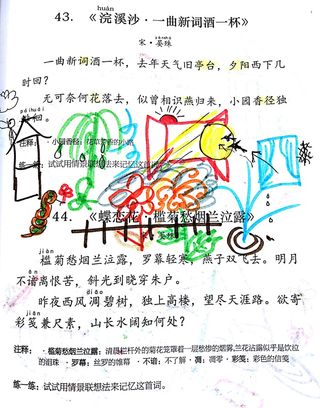 huàn
43. 《浣溪沙·一曲新词酒一杯》
宋·晏殊
一曲新词酒一杯，去年天气旧亭台，夕阳西下几
时回？
无可奈何花落去，似曾相识燕归来，小园香径独
pái huái
注释： ·小园香径：花草芳香的小路
练一练：试试用情景联想法来记忆这首词
44. 《蝶恋花·槛菊愁烟兰泣露》
jiàn
槛菊愁烟兰泣露，罗幕轻寒，燕子双飞去。明月
ān
不谙离恨苦，斜光到晓穿朱户。
diāo
昨夜西风凋碧树，独上高楼，望尽天涯路。欲寄
jiān
彩笺兼尺素，山长水阔知何处？
注释： ·槛菊愁烟兰泣露：清晨栏杆外的菊花笼罩着一层愁惨的烟雾，兰花沾露似乎是饮泣
的泪珠 ·罗幕：丝罗的帷幕 ·不谙：不了解 ·凋：凋零 ·彩笺：彩色的信笺
练一练：试试用情景联想法来记忆这首词。